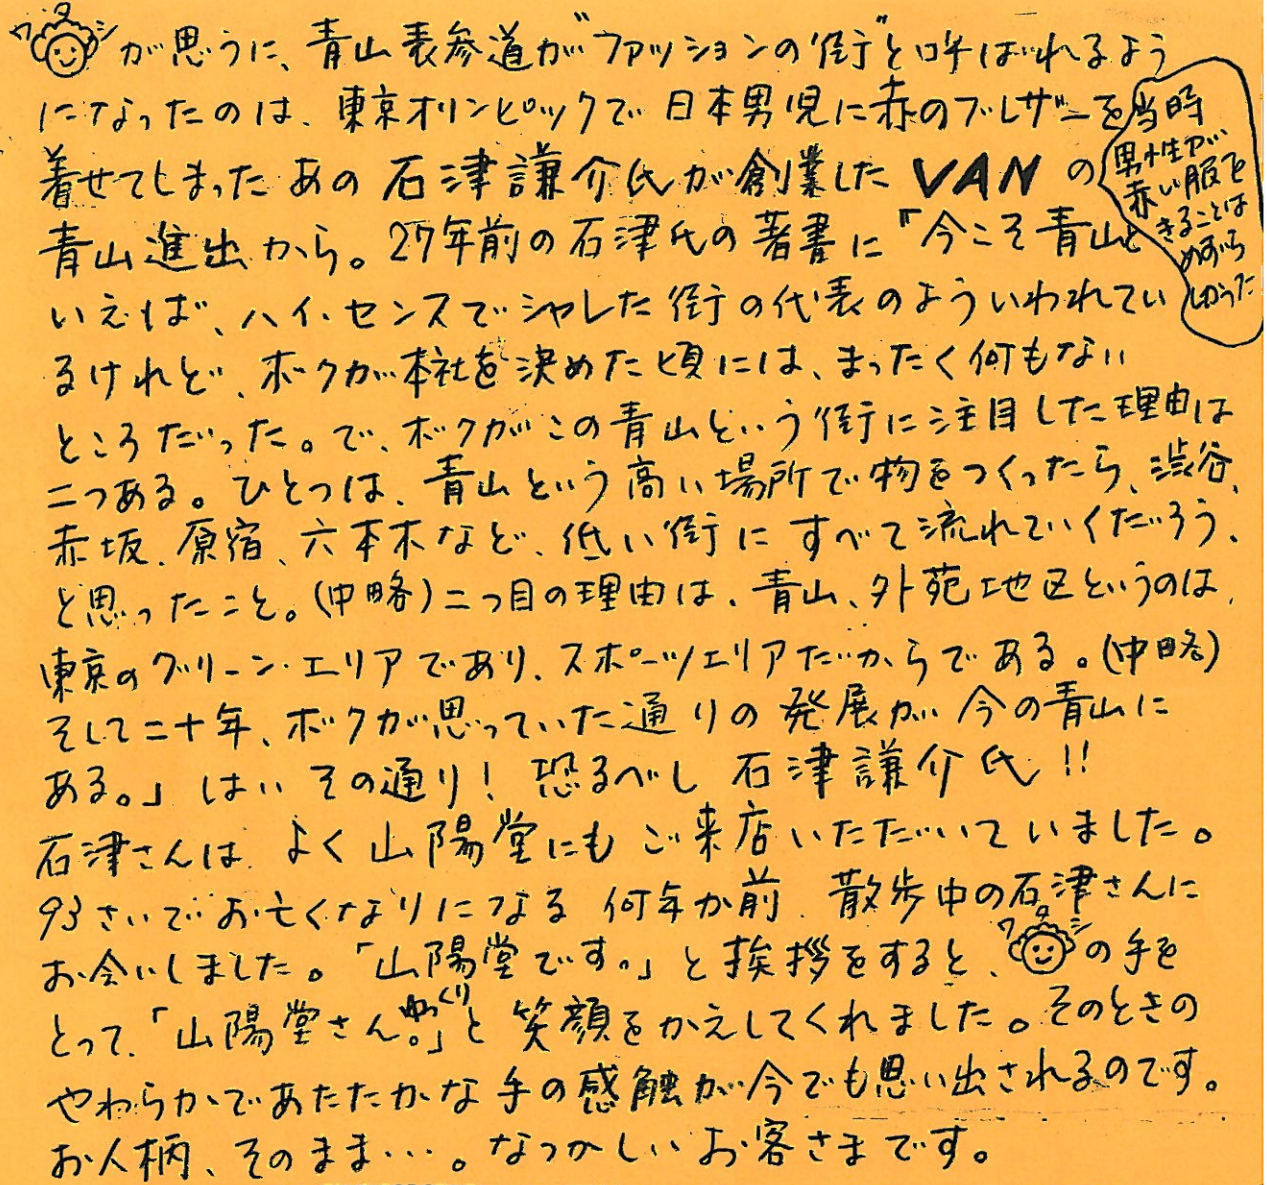 ワタシが思うに、青山表参道が"ファッションの街"と呼ばれるよう
になったのは、東京オリンピックで日本男児に赤のブレザーを
着せてしまったあの石津謙介氏が創業したVANの
青山進出から。27年前の石津氏の著書に「今こそ青山と
いえば、ハイ・センスでシャレた街の代表のよういわれてい
るけれど、ボクが本社を決めた頃には、まったく何もない
ところだった。で、ボクがこの青山という街に注目した理由は
二つある。ひとつは、青山という高い場所で物をつくったら、渋谷、
赤坂、原宿、六本木など、低い街にすべて流れていくだろう、
と思ったこと。(中略)二つ目の理由は、青山、外苑地区というのは、
東京のグリーン・エリアであり、スポーツエリアだからである。(中略)
そして二十年、ボクが思っていた通りの発展が今の青山に
ある。」はいその通り!恐るべし石津謙介氏!!
石津さんは、よく山陽堂にもご来店いただいていました。
93さいでお亡くなりになる何年か前、散歩中の石津さんに
お会いしました。「山陽堂です。」と挨拶をすると、ワタシの手を
とって、「山陽堂さん。」ゆっくりと笑顔をかえしてくれました。そのときの
やわらかであたたかな手の感触が今でも思い出されるのです。
お人柄、そのまま…。なつかしいお客さまです。
当時
男性が
赤い服を
きることは
めずら
しかった